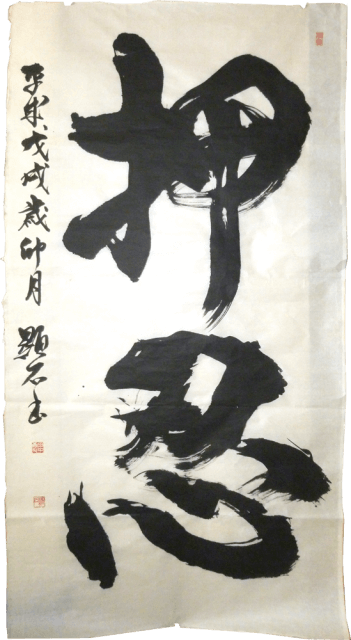 押忍
平成戊戌歳卯月 顯石書